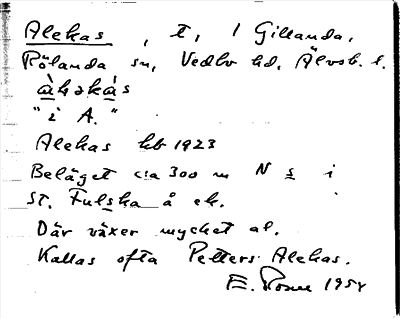 Alekas, t, 1 Gillanda,
Rölanda sn, Vedbo hd, Älvsb. l.
àləkás
"i A."
Alekas kb 1923
Beläget c:a 300 m N s i
St. Fulska å ek.
Där växer mycket al.
Kallas ofta Petters Alekas.
E. 1954